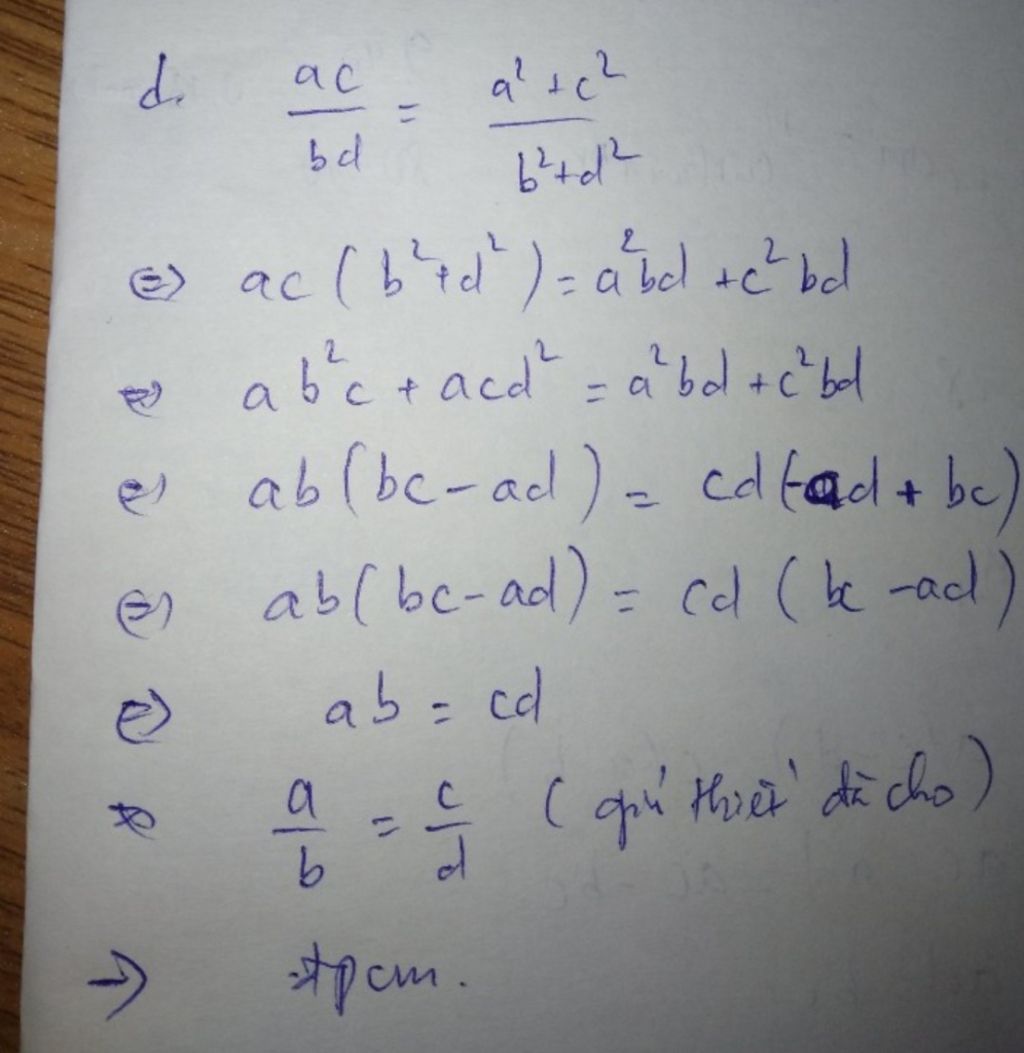 d. \frac{ac}{bd} = \frac{a² + c²}{b² + d²}
⇔ ac(b² + d²) = a²bd + c²bd
⇔ ab²c + acd² = a²bd + c²bd
⇔ ab(bc - ad) = cd(-ad + bc)
⇔ ab(bc - ad) = cd(bc - ad)
⇔ ab = cd
⇔ \frac{a}{b} = \frac{c}{d} (giả thiết đã cho)
→ đpcm.